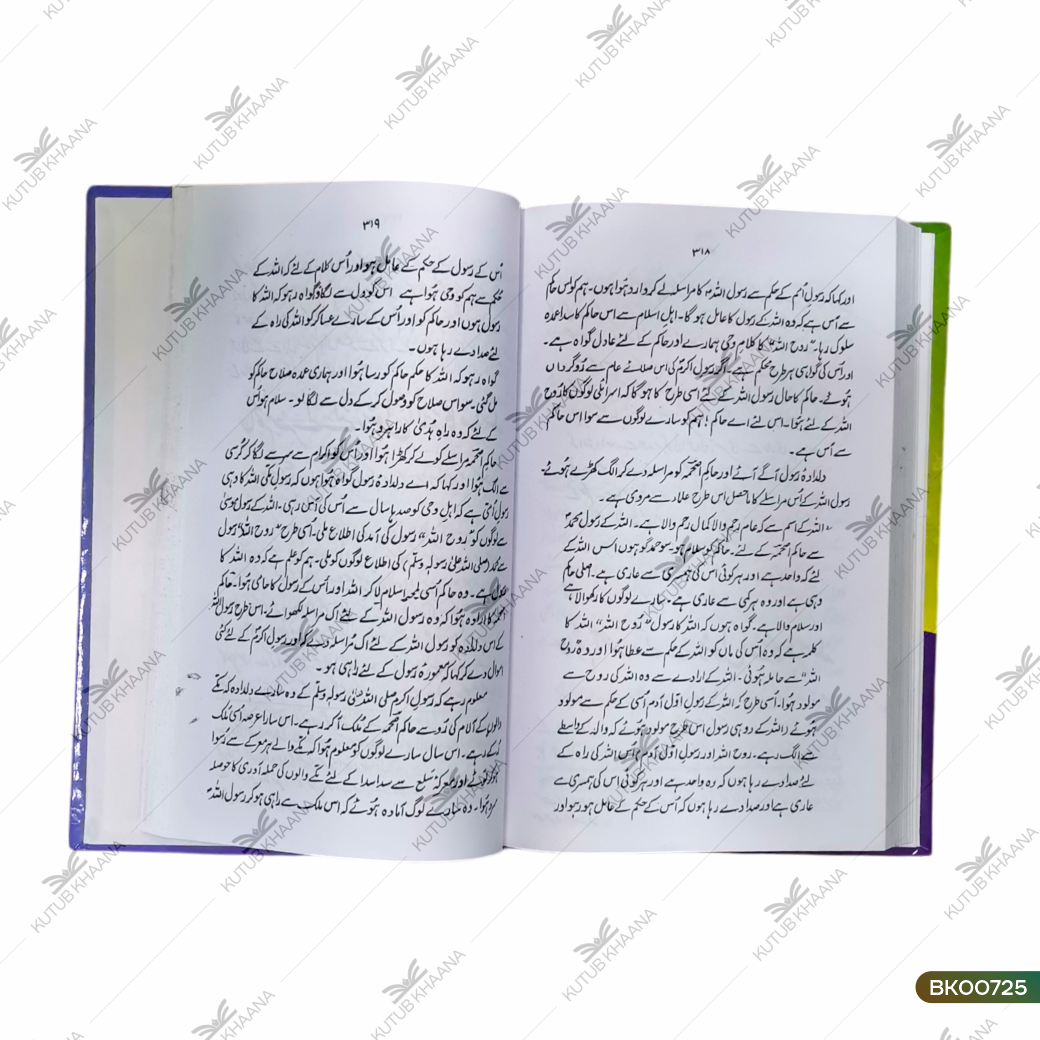 ۳۱۸
اور کہا کہ رسولِ اُمم کے حکم سے رسول اللہؐ کا مراسلہ لے کر وارد ہُوا ہوں۔ ہم کو اس حاکم
سے آس ہے کہ وہ اللہ کے رسول کا عامل ہو گا۔ اہلِ اسلام سے اس حاکم کا سدا عمدہ
سلوک رہا۔ "روح اللہ" کا کلامِ وحی ہمارے اور حاکم کے لئے عادل گواہ ہے۔
اور اُس کی گواہی ہر طرح محکم ہے۔ اگر رسولِ اکرمؐ کی اس صلائے عام سے رُوگرداں
ہوئے۔ حاکم کا حال رسول اللہ کے لئے اسی طرح کا ہو گا کہ اسرائلی لوگوں کا رُوح
اللہ کے لئے ہُوا۔ اس لئے اے حاکم! ہم کو سارے لوگوں سے سوا اس حاکم
سے آس ہے۔
دلدادۂ رسول آگے آئے اور حاکمِ اصحمہ کو مراسلہ دے کر الگ کھڑے ہوئے۔
رسول اللہ کے اُس مراسلے کا ماحصل اس طرح علماء سے مروی ہے۔
"اللہ کے اسم سے کہ عام رحم والا کمال رحم والا ہے۔ اللہ کے رسول محمدؐ
سے حاکم اصحمہ کے لئے۔ حاکم کو سلام ہو۔ سو حمد گو ہوں اس اللہ کے
لئے کہ واحد ہے اور ہر کوئی اس کی ہمسری سے عاری ہے۔ اصلی حاکم
وہی ہے اور وہ ہر کمی سے عاری ہے۔ سارے لوگوں کا رکھوالا ہے
اور سلام والا ہے۔ گواہ ہوں کہ اللہ کا رسول "رُوح اللہ" اللہ کا
کلمہ ہے کہ وہ اُس کی ماں کو اللہ کے حکم سے عطا ہُوا اور وہ رُوح
اللہ" سے حاملہ ہوئی۔ اللہ کے ارادے سے وہ اللہ کی روح سے
مولود ہُوا۔ اُسی طرح کہ اللہ کے رسولِ اوّل آدم اُسی کے حکم سے مولود
ہوئے (اللہ کے دو ہی رسول اس طرح مولود ہوئے کہ والد کے واسطے
سے الگ رہے۔ روح اللہ اور رسولِ اوّل آدمؑ) اُس اللہ کی راہ کے
لئے صدا دے رہا ہوں کہ وہ واحد ہے اور ہر کوئی اس کی ہمسری سے
عاری ہے اور صدا دے رہا ہوں کہ اُس کے حکم کے عامل ہو رہو اور
۳۱۹
اُس کے رسول کے حکم کے عامل ہو اور اُس کلام کے لئے کہ اللہ کے
حُکم سے ہم کو وحی ہُوا ہے اُس کو دل سے لگاؤ گواہ رہو کہ اللہ کا
رسول ہوں اور حاکم کو اور اُس کے سارے عساکر کو اللہ کی راہ کے
لئے صدا دے رہا ہوں۔
گواہ رہو کہ اللہ کا حکم حاکم کو رسا ہُوا اور ہماری عمدہ صلاح حاکم کو
مل گئی۔ سو اس صلاح کو وصُول کر کے دل سے لگا لو۔ سلام ہو اُس
کے لئے کہ وہ راہِ ہُدیٰ کا راہرو ہُوا۔
حاکم اصحمہ مراسلے کو لے کر کھڑا ہُوا اور اُس کو اکرام سے سر سے لگا کر کُرسی
سے الگ ہُوا اور کہا کہ اے دلدادۂ رسول گواہ ہوں کہ رسولِ مکّی اللہ کا وہی
رسولِ اُمّی ہے کہ اہلِ وحی کو صدہا سال سے اُس کی آس رہی۔ اللہ کے رسول موسٰی
سے لوگوں کو "روح اللہ" رسول کی آمد کی اطلاع ملی۔ اُسی طرح "روح اللہ" رسول
سے محمد (صلی اللہ علیٰ رسولہٖ وسلّم) کی اطلاع لوگوں کو ملی۔ ہم کو علم ہے کہ وہ اللہ کا
رسول ہے۔ وہ حاکم اُسی لمحہ اسلام لا کر اللہ اور اُس کے رسول کا حامی ہُوا۔ حاکمِ
اصحمہ کا ارادہ ہُوا کہ وہ رسول اللہ کے لئے اک مراسلہ لکھوائے۔ اس طرح رسول اللہ
کے اس دلدادہ کو رسول اللہ کے لئے اک مُراسلہ دے کر اور رسولِ اکرمؐ کے لئے کئی
اموال دے کر کہا کہ معمورۂ رسول کے لئے راہی ہو۔
معلوم رہے کہ رسولِ اکرم صلی اللہ علیٰ رسولہٖ وسلّم کے وہ سارے دلدادہ کہ مکّے
والوں کے آلام کی رُو سے حاکمِ اصحمہ کے مُلک آ کر رہے۔ اس سارا عرصہ اُسی مُلک
رُکے رہے۔ اس سال سارے لوگوں کو معلوم ہُوا کہ مکّے والے ہر معرکے سے رُسوا
ہو کر لوٹے اور معرکۂ سلع سے سدا سدا کے لئے مکّے والوں کی حملہ آوری کا حوصلہ
سرد ہُوا۔ وہ سارے لوگ آمادہ ہوئے کہ اس ملک سے راہی ہو کر رسول اللہؐ
KUTUB KHAANA
BK00725